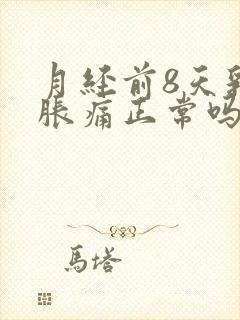 月经前8天
脹痛正常吗
馬塔